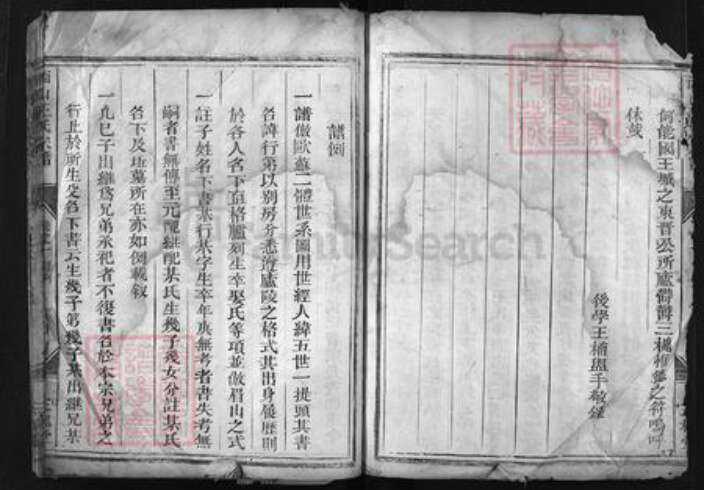 何能國王城之東晉公所廬鬱鬱三槐惟德之符嗚呼
休哉
後學王楠盥手敬錄
譜例
一譜倣歐蘇二體世系圖用世經人緯五世一提頭其書
名諱行第以別房分悉遵廬陵之格式其出身履歷則
於各人名下直格臚列生卒娶氏等項並倣眉山之式
一註子姓名下書某行某字生卒年庚無考者書失考無
嗣者書無傳至元配繼配某氏生幾子幾女分註某氏
名下及坵墓所在亦如例載敘
一凡已子出繼為兄弟承祀者不復書名於本宗兄弟之
行止於所生父名下書云生幾子第幾子某出繼兄某
FamilySearch